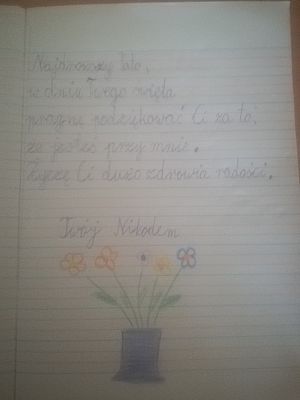 Najdroższy Tato,
w dniu Twego święta
pragnę podziękować Ci za to,
że jesteś przy mnie.
Życzę Ci dużo zdrowia radości.
Twój Nikodem